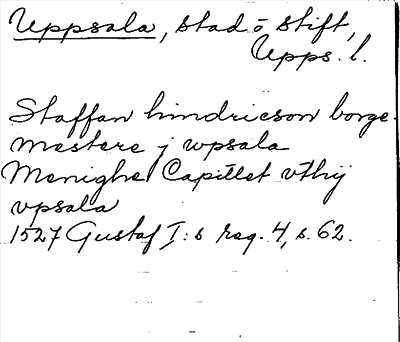 Uppsala, stad o stift,
Upps. l.
Staffan hindricson borge-
mestere j wpsala
Menighe Capitlet vthj
vpsala
1527 Gustaf I:s reg. 4, s. 62.